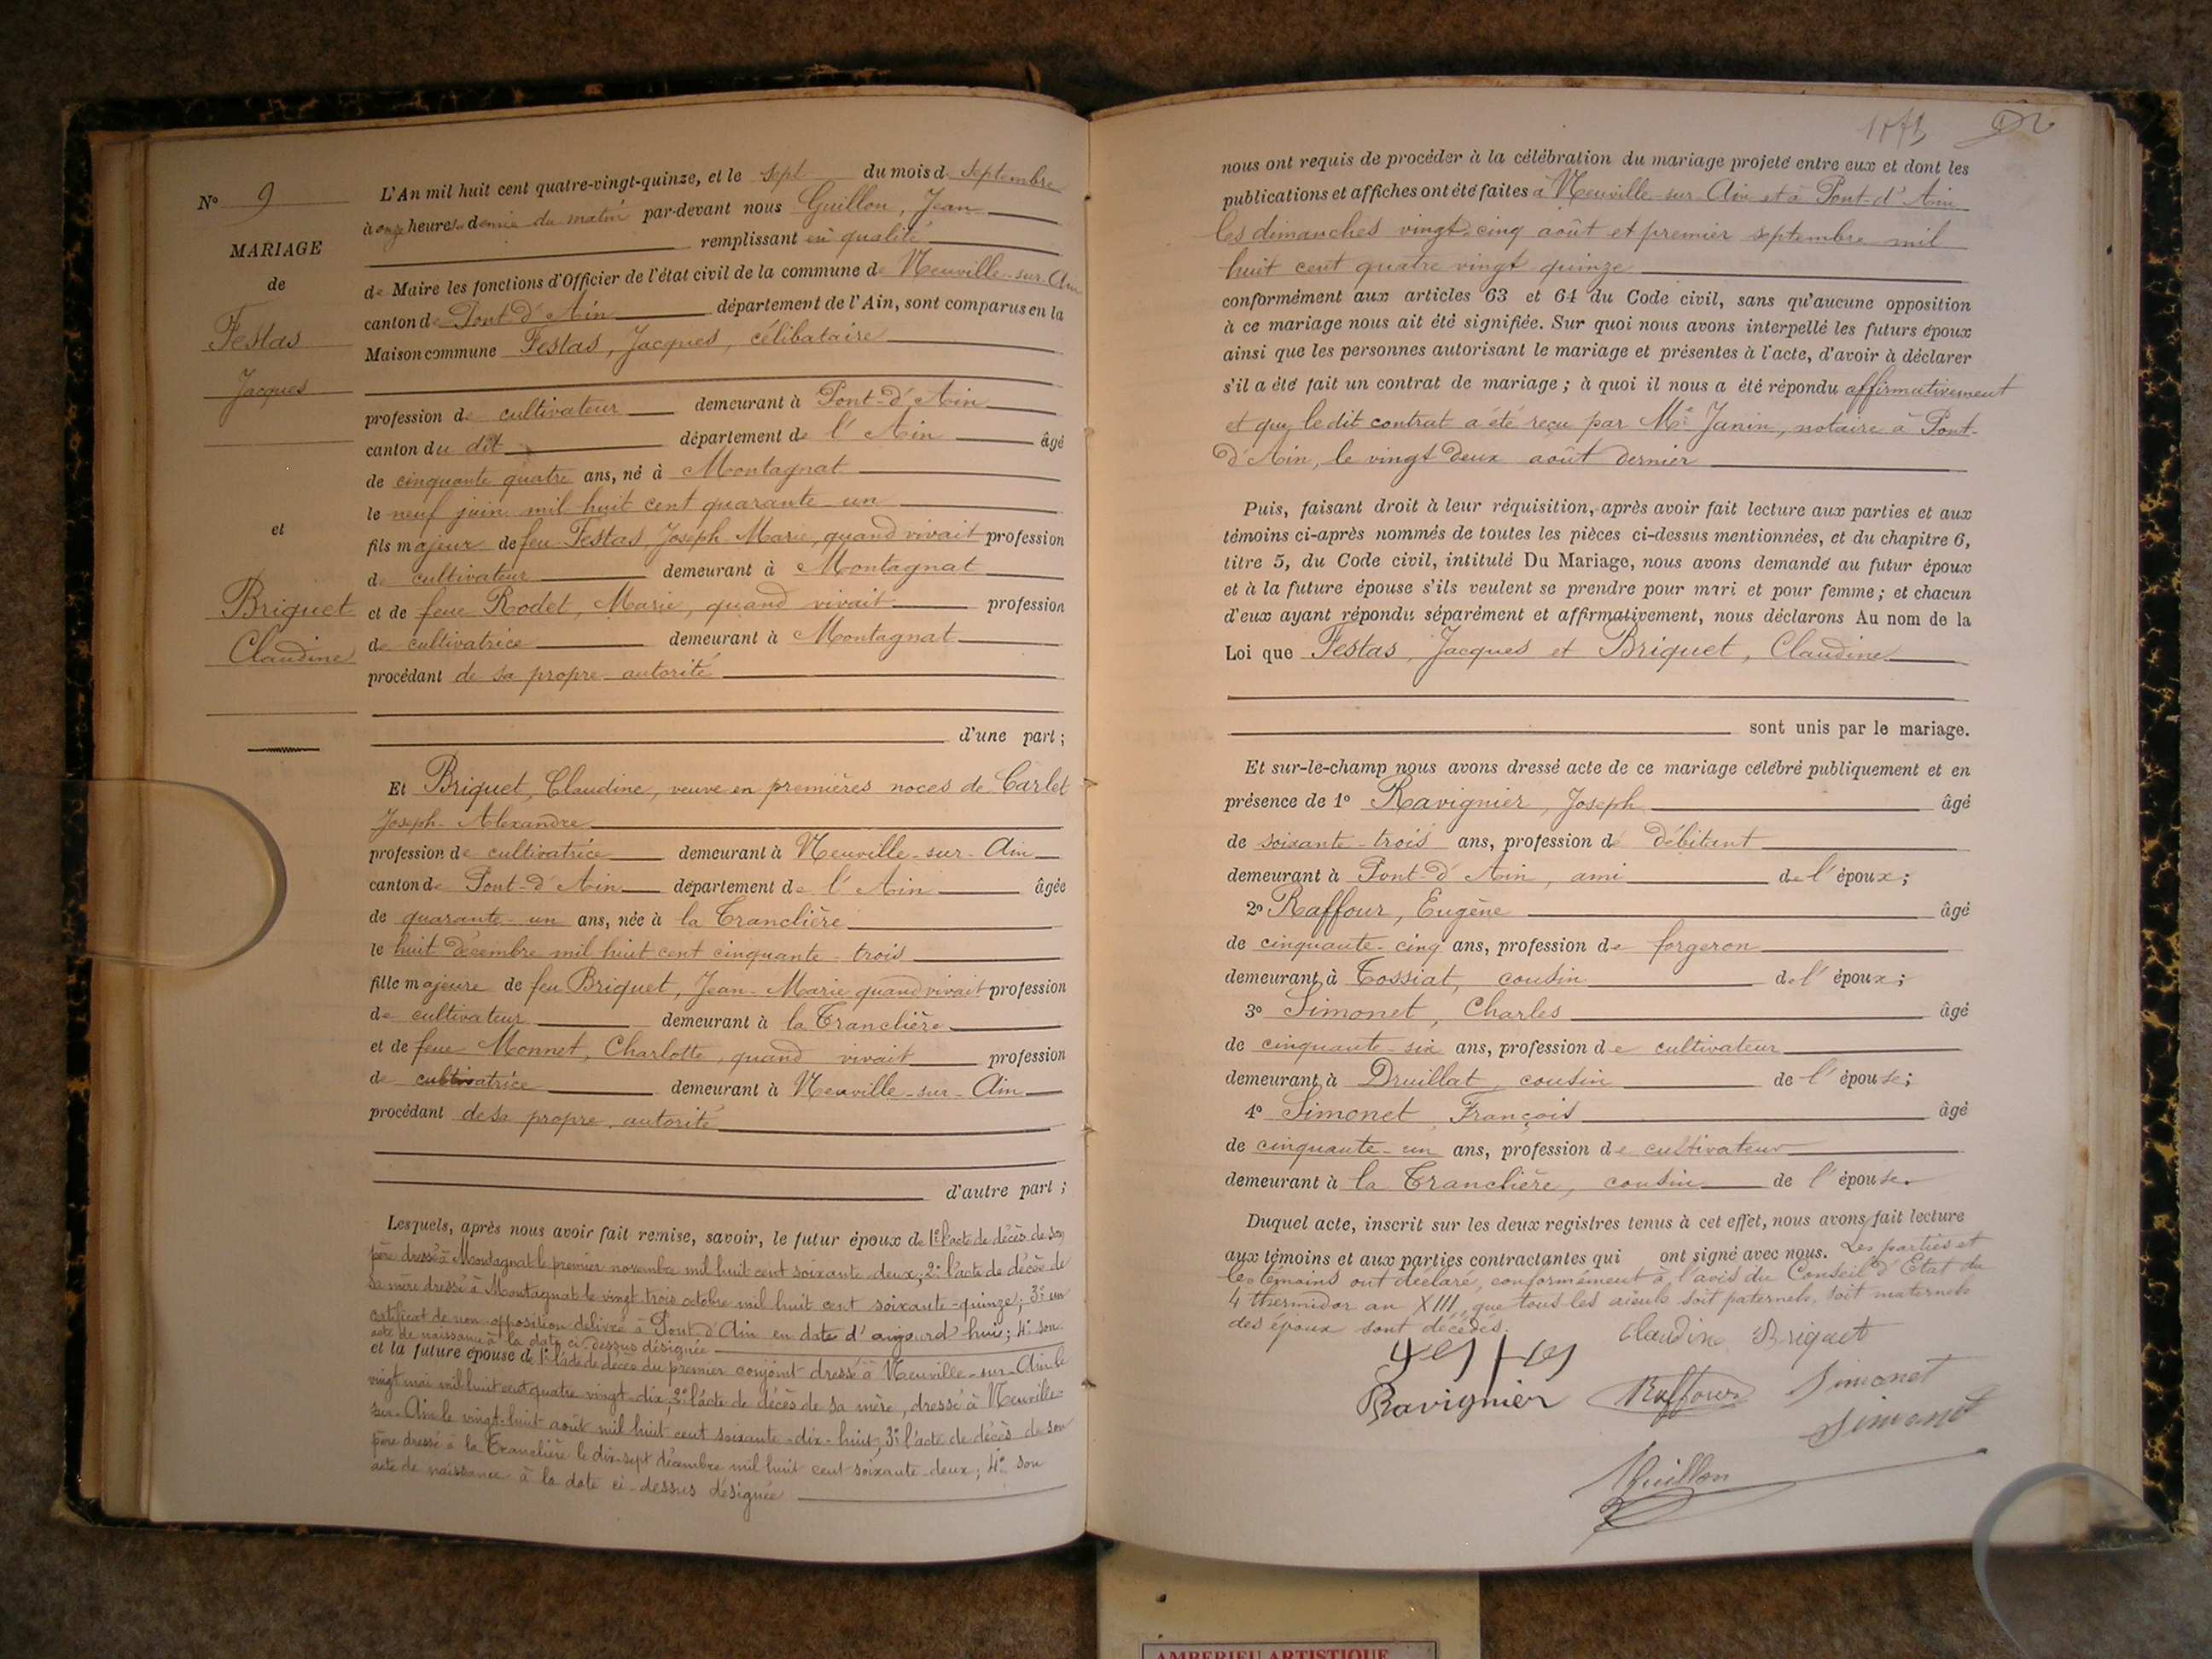 N° 9
MARIAGE
de
Festas
Jacques
et
Briquet
Claudine
L'An mil huit cent quatre-vingt-quinze, et le sept du mois de septembre
à onze heures demie du matin par-devant nous Guillon, Jean
remplissant en qualité
de Maire les fonctions d'Officier de l'état civil de la commune de Neuville-sur-Ain
canton de Pont-d'Ain département de l'Ain, sont comparus en la
Maison commune Festas, Jacques, célibataire
profession de cultivateur demeurant à Pont-d'Ain
canton du dit département de l'Ain âgé
de cinquante quatre ans, né à Montagnat
le neuf juin mil huit cent quarante un
fils majeur de feu Festas Joseph-Marie, quand vivait profession
de cultivateur demeurant à Montagnat
et de feue Rodet, Marie, quand vivait profession
de cultivatrice demeurant à Montagnat
procédant de sa propre autorité
d'une part;
Et Briquet, Claudine, veuve en premières noces de Carlet
Joseph-Alexandre
profession de cultivatrice demeurant à Neuville-sur-Ain
canton de Pont-d'Ain département de l'Ain âgée
de quarante-un ans, née à la Tranclière
le huit décembre mil huit cent cinquante-trois
fille majeure de feu Briquet, Jean-Marie quand vivait profession
de cultivateur demeurant à la Tranclière
et de feue Monnet, Charlotte, quand vivait profession
de cultivatrice demeurant à Neuville-sur-Ain
procédant de sa propre autorité
d'autre part;
Lesquels, après nous avoir fait remise, savoir, le futur époux de 1° l'acte de décès de son
père dressé à Montagnat le premier novembre mil huit cent soixante-deux; 2° l'acte de décès de
sa mère dressé à Montagnat le vingt trois octobre mil huit cent soixante-quinze; 3° un
certificat de non opposition délivré à Pont-d'Ain en date d'aujourd'hui; 4° son
acte de naissance à la date ci-dessus désignée
et la future épouse de 1° l'acte de décès du premier conjoint dressé à Neuville-sur-Ain le
vingt mai mil huit cent quatre vingt-dix, 2° l'acte de décès de sa mère, dressé à Neuville-
sur-Ain le vingt-huit août mil huit cent soixante-dix-huit, 3° l'acte de décès de son
père dressé à la Tranclière le dix-sept décembre mil huit cent soixante-deux; 4° son
acte de naissance à la date ci-dessus désignée
nous ont requis de procéder à la célébration du mariage projeté entre eux et dont les
publications et affiches ont été faites à Neuville-sur-Ain et à Pont-d'Ain
les dimanches vingt-cinq août et premier septembre mil
huit cent quatre vingt quinze
conformément aux articles 63 et 64 du Code civil, sans qu'aucune opposition
à ce mariage nous ait été signifiée. Sur quoi nous avons interpellé les futurs époux
ainsi que les personnes autorisant le mariage et présentes à l'acte, d'avoir à déclarer
s'il a été fait un contrat de mariage; à quoi il nous a été répondu affirmativement
et que le dit contrat a été reçu par Me Janin, notaire à Pont-
d'Ain, le vingt deux août dernier
Puis, faisant droit à leur réquisition, après avoir fait lecture aux parties et aux
témoins ci-après nommés de toutes les pièces ci-dessus mentionnées, et du chapitre 6,
titre 5, du Code civil, intitulé Du Mariage, nous avons demandé au futur époux
et à la future épouse s'ils veulent se prendre pour mari et pour femme; et chacun
d'eux ayant répondu séparément et affirmativement, nous déclarons Au nom de la
Loi que Festas, Jacques et Briquet, Claudine
sont unis par le mariage.
Et sur-le-champ nous avons dressé acte de ce mariage célébré publiquement et en
présence de 1° Ravignier, Joseph âgé
de soixante-trois ans, profession de débitant
demeurant à Pont-d'Ain, ami de l'époux;
2° Raffour, Eugène âgé
de cinquante-cinq ans, profession de forgeron
demeurant à Tossiat, cousin de l'époux;
3° Simonet, Charles âgé
de cinquante-six ans, profession de cultivateur
demeurant à Druillat, cousin de l'épouse;
4° Simonet François âgé
de cinquante-un ans, profession de cultivateur
demeurant à la Tranclière, cousin de l'épouse.
Duquel acte, inscrit sur les deux registres tenus à cet effet, nous avons fait lecture
aux témoins et aux parties contractantes qui ont signé avec nous. Les parties et
les témoins ont déclaré, conformément à l'avis du Conseil d'Etat du
4 thermidor an XIII, que tous les aïeuls soit paternels, soit maternels
des époux sont décédés.
Claudine Briquet
Festas
Ravignier Raffour Simonet
Simonet
Guillon
AMBERIEU ARTISTIQUE